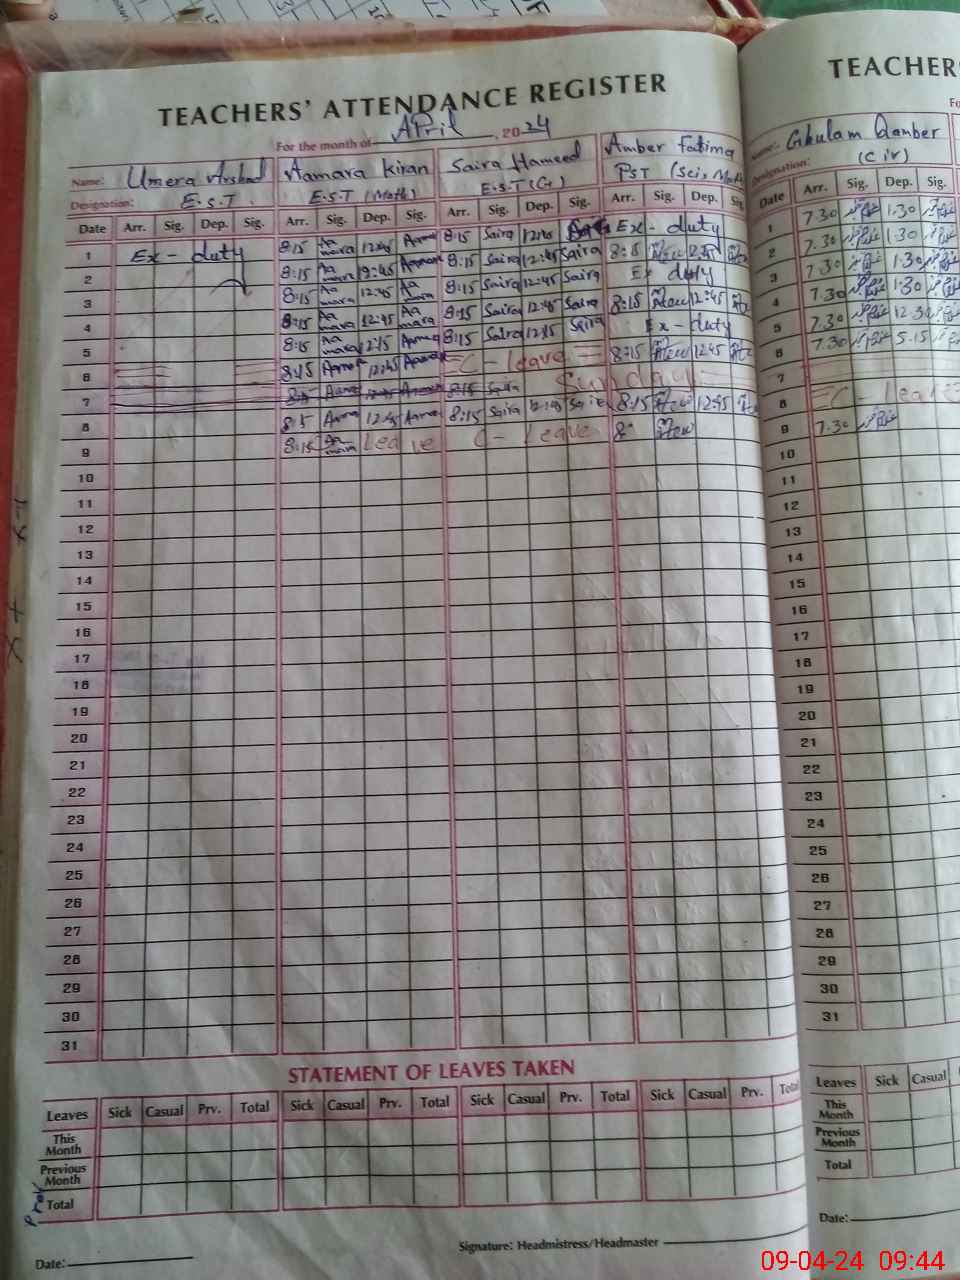 TEACHERS' ATTENDANCE REGISTER
For the month of April, 2024
Name: Umera Arshad Aamara Kiran Saira Hameed Amber Fatima
Designation: E.S.T. E.S.T (Math) E.S.T (G) PST (Sci, Math
Date Arr. Sig. Dep. Sig. Arr. Sig. Dep. Sig. Arr. Sig. Dep. Sig. Arr. Sig. Dep. Sig.
1 Ex - duty 8:15 Aamara 12:45 8:15 Saira 12:45 Ex - duty
2 8:15 Aamara 12:45 8:15 Saira 12:45 Saira 8:15 12:45
3 8:15 Aamara 12:45 Aamara 8:15 Saira 12:45 Saira Ex duty
4 8:15 Aamara 12:45 Aamara 8:15 Saira 12:45 Saira 8:15 12:45
5 8:15 Aamara 12:15 8:15 Saira 12:15 Saira Ex - duty
6 8:15 12:45 C - leave 8:15 12:45
7 8:15 Saira Sunday
8 12:45 8:15 Saira 12:45 8:15 12:45
9 8:15 Aamara Leave C - Leave 8:
10
11
12
13
14
15
16
17
18
19
20
21
22
23
24
25
26
27
28
29
30
31
STATEMENT OF LEAVES TAKEN
Leaves Sick Casual Prv. Total Sick Casual Prv. Total Sick Casual Prv. Total Sick Casual Prv. Total
This Month
Previous Month
Total
Date:
Signature: Headmistress/Headmaster
TEACHER
Fo
Name: Ghulam Qamber
Designation: (C iv)
Date Arr. Sig. Dep. Sig.
1 7.30 1.30
2 7.30 1.30
3 7.30 1.30
4 7.30 1.30
5 7.30 12.30
6 7.30 5.15
7
8 C - Leave
9 7.30
10
11
12
13
14
15
16
17
18
19
20
21
22
23
24
25
26
27
28
29
30
31
Leaves Sick Casual
This Month
Previous Month
Total
Date:
09-04-24 09:44